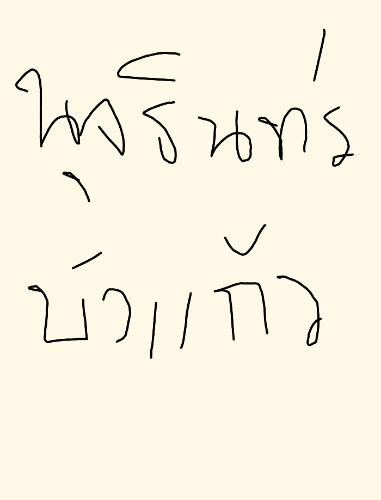 นุจรินทร์
บัวแก้ว